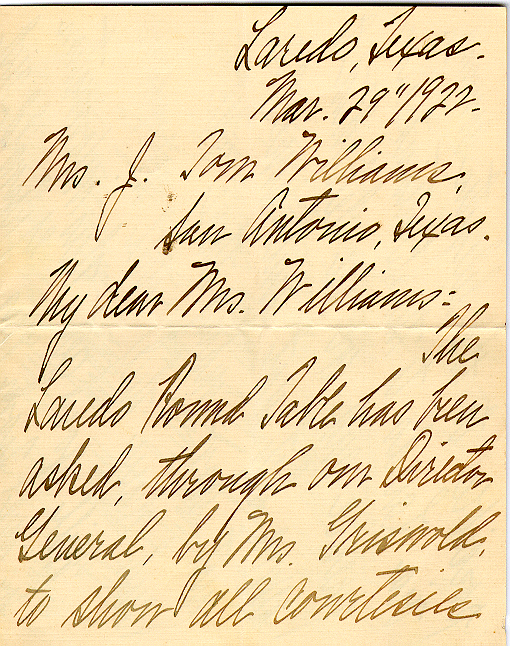 Laredo, Texas.
Mar. 29" 1922.
Mrs. J. Tom Williams,
San Antonio, Texas.
My dear Mrs. Williams:-
The
Laredo Round Table has been
asked, through our Director
General, by Mrs. Griswold,
to show all courtesies